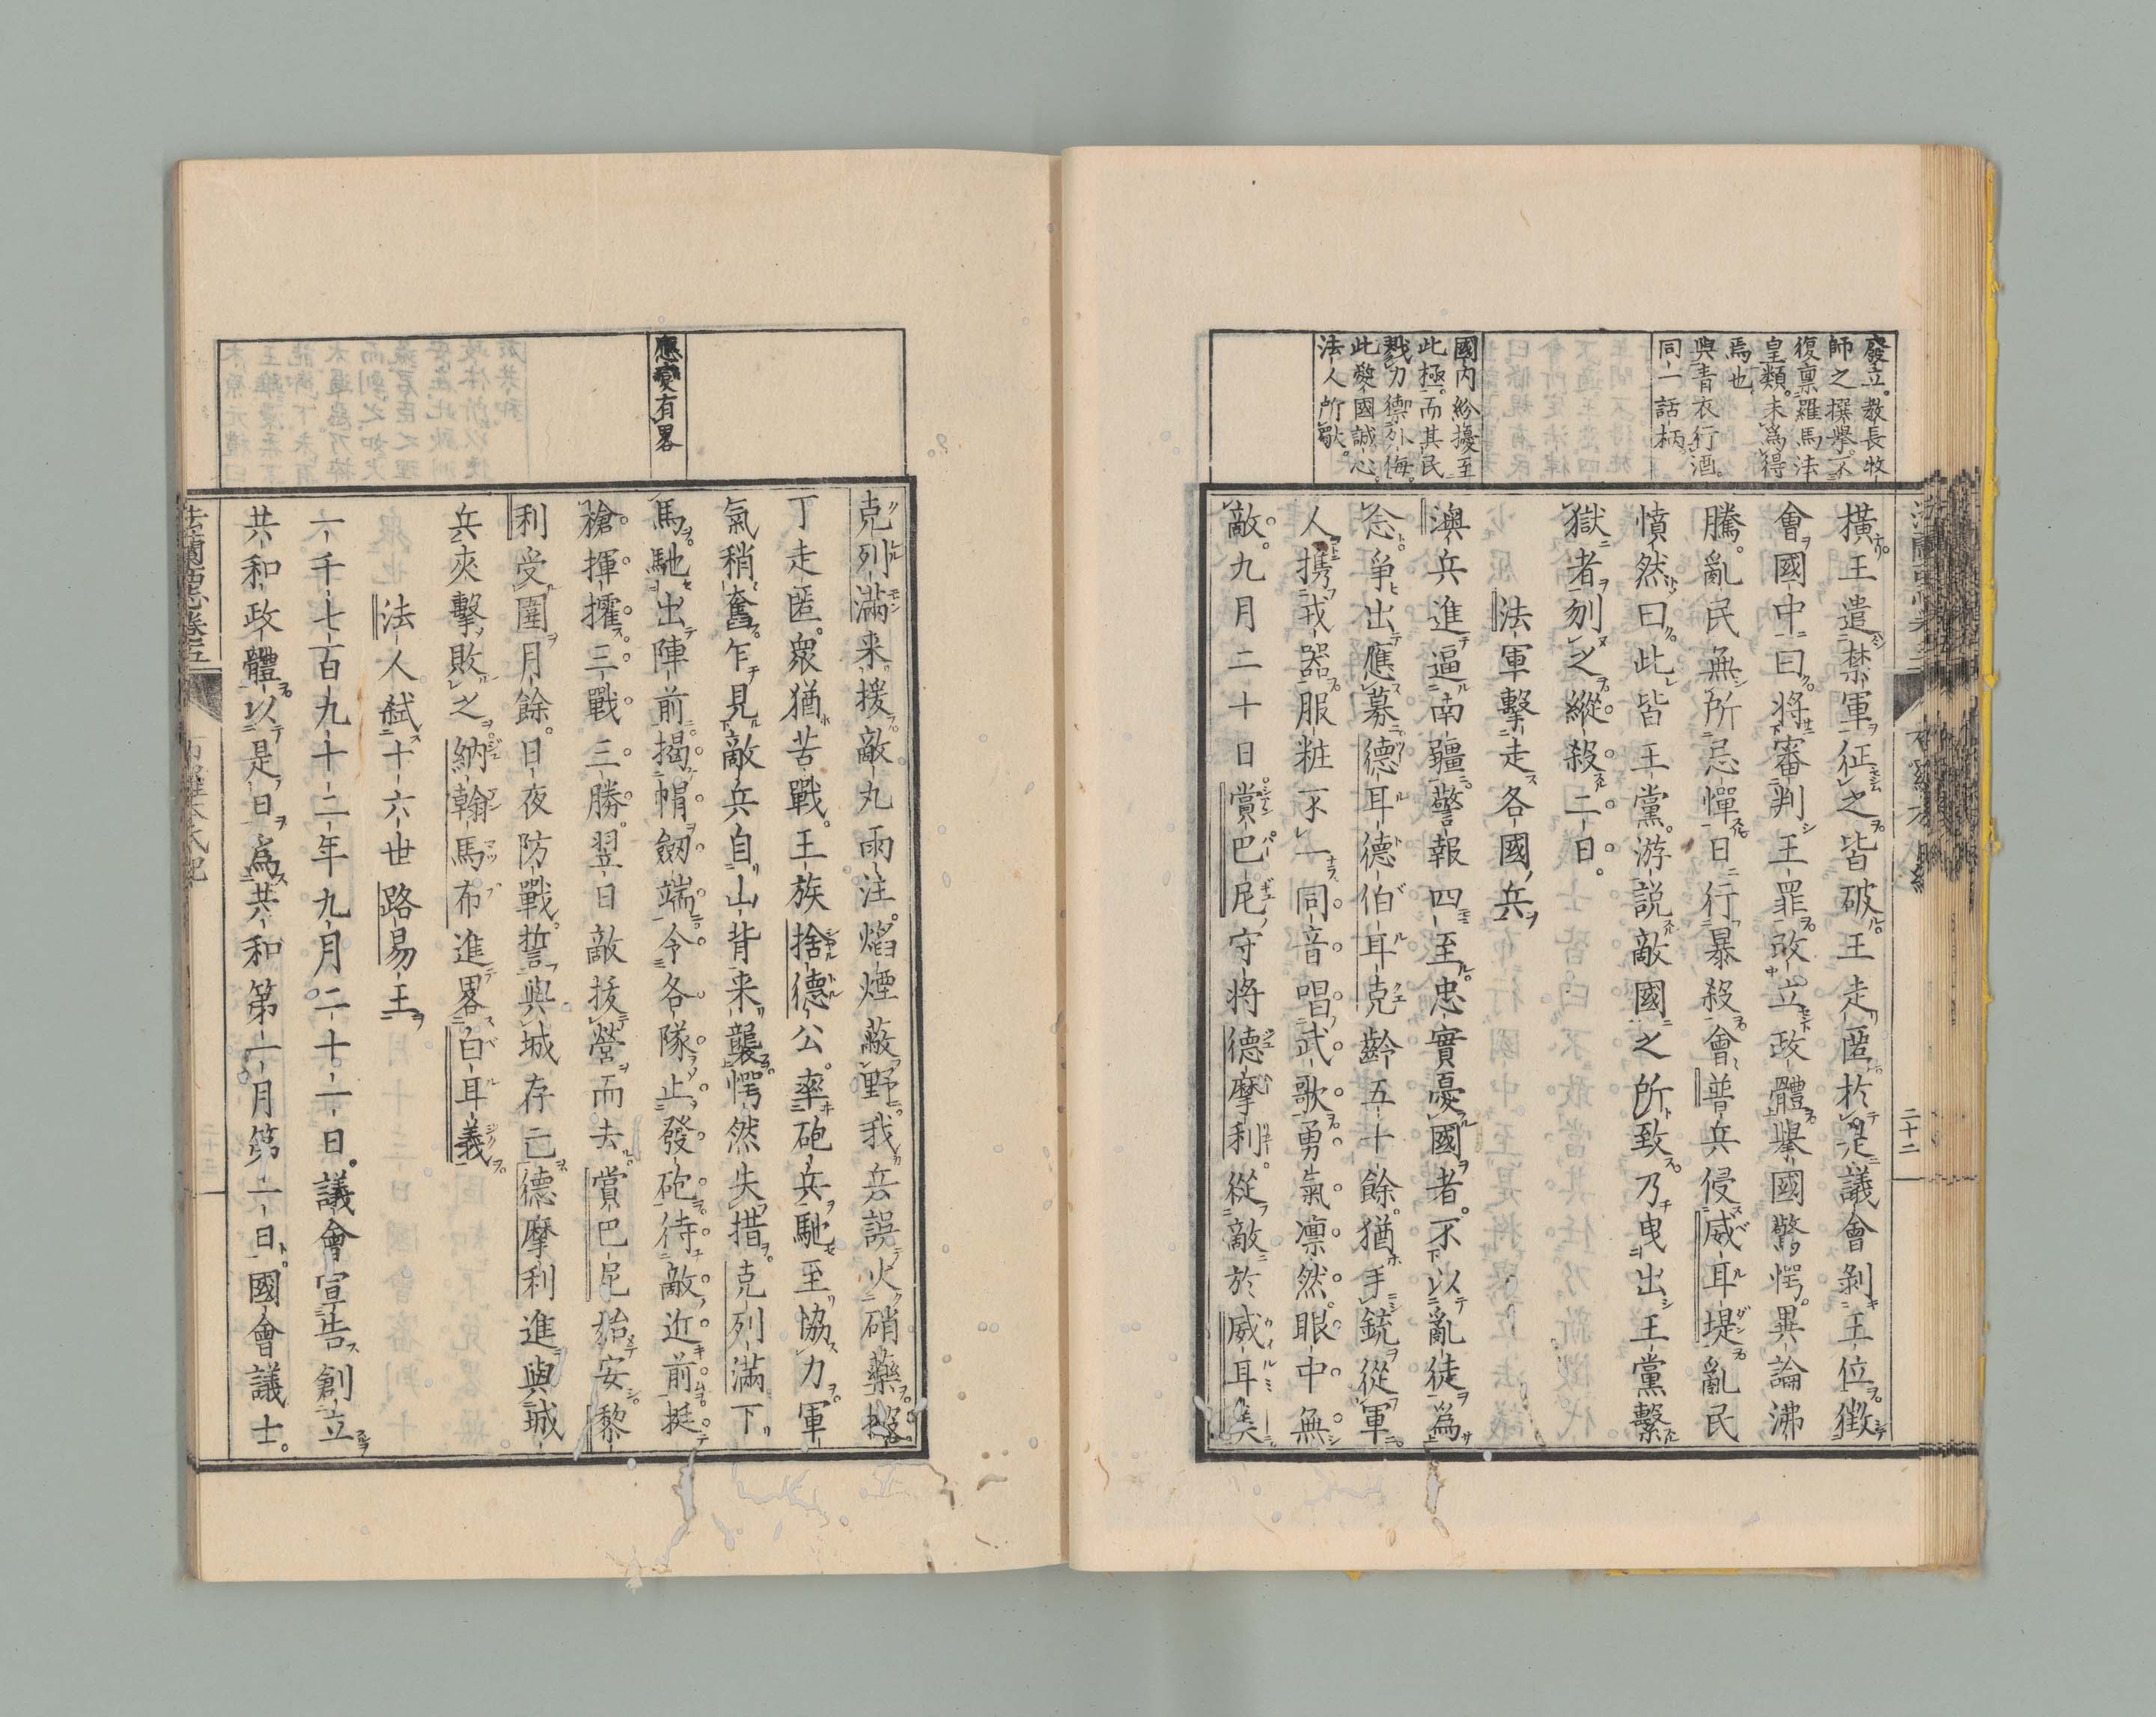 廢立。教長牧
師之撰擧。不
復稟羅馬法
皇類。未為得
焉也
與青衣行酒。
同一話柄。
國内紛擾至
此極。而其民
戮力禦外侮。
此愛國誠心。
法人所歇。
橫。王遣禁軍征之。皆破。王走匿。於是議會剝王位。徴
會國中曰。將審判王罪。改立政體。擧國驚愕。異論沸
騰。亂民無所忌憚。日行暴殺。會普兵侵威耳堤。亂民
憤然曰。此皆王黨。游説敵國之所致。乃曳出王黨繫
獄者刎之。縱殺二日。
法軍擊走各國兵
澳兵進逼南疆。警報四至。忠實憂國者。不以亂徒為
念。爭出應募。德耳德伯耳克齡五十餘。猶手銃從軍。
人携戎器。服粧不一。同音唱武歌。勇氣凛然。眼中無
敵。九月二十日。賞巴尼守將德摩利。從敵於威耳
二十二
應變有畧
克列滿来援。敵丸雨注。焰煙蔽野。我兵誤火硝藥。
丁走匿。眾猶苦戰。王族捨德公。率砲兵馳至協力。軍
氣稍奮。乍見敵兵自山背来襲。愕然失措。克列滿下
馬。馳出陣前。揭帽劒端。令各隊止發砲。待敵近前。挺
槍揮擢。三戰三勝。翌日敵拔營而去。賞巴尼始安。黎
利受圍月餘。日夜防戰。誓與城存亡。德摩利進與城
兵夾擊敗之。納翰馬布進畧白耳義。
法人弑十六世路易王
一千七百九十二年九月二十一日。議會宣告創立
共和政體。以是日為共和第一月第一日。國會議士。
法蘭西志卷五